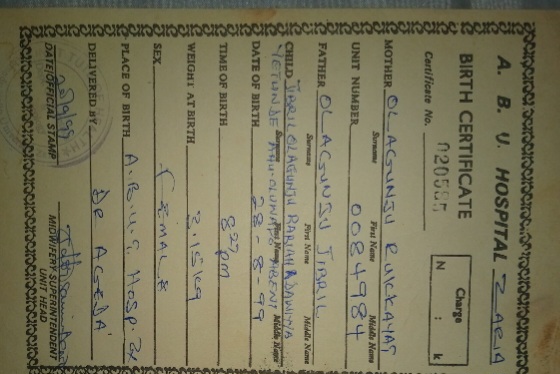 A. B. U. HOSPITAL ZARIA
BIRTH CERTIFICATE
Certificate No.
Charge
N : k
MOTHER OLAGUNJU
Surname First Name Middle Name
UNIT NUMBER 0084984
FATHER OLAGUNJU JIBRIL
Surname First Name Middle Name
CHILD JIBRIL OLAGUNJU
YETUNDE
Surname First Name Middle Name
DATE OF BIRTH 28-8-99
TIME OF BIRTH 8 27 pm
WEIGHT AT BIRTH 3.15kg
SEX FEMALE
PLACE OF BIRTH A.B.U.
DELIVERED BY DR
DATE/OFFICIAL STAMP
MIDWIFERY SUPERINTENDENT
UNIT HEAD